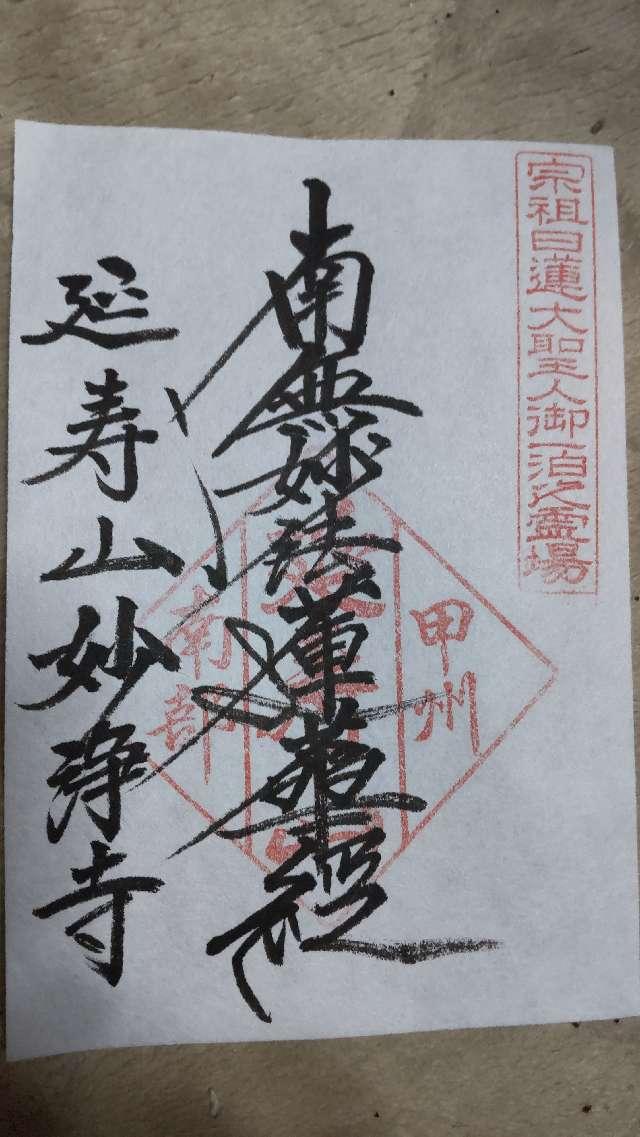 宗祖日蓮大聖人御一泊之霊場
甲州
南部
南無妙法蓮華経
延寿山妙浄寺